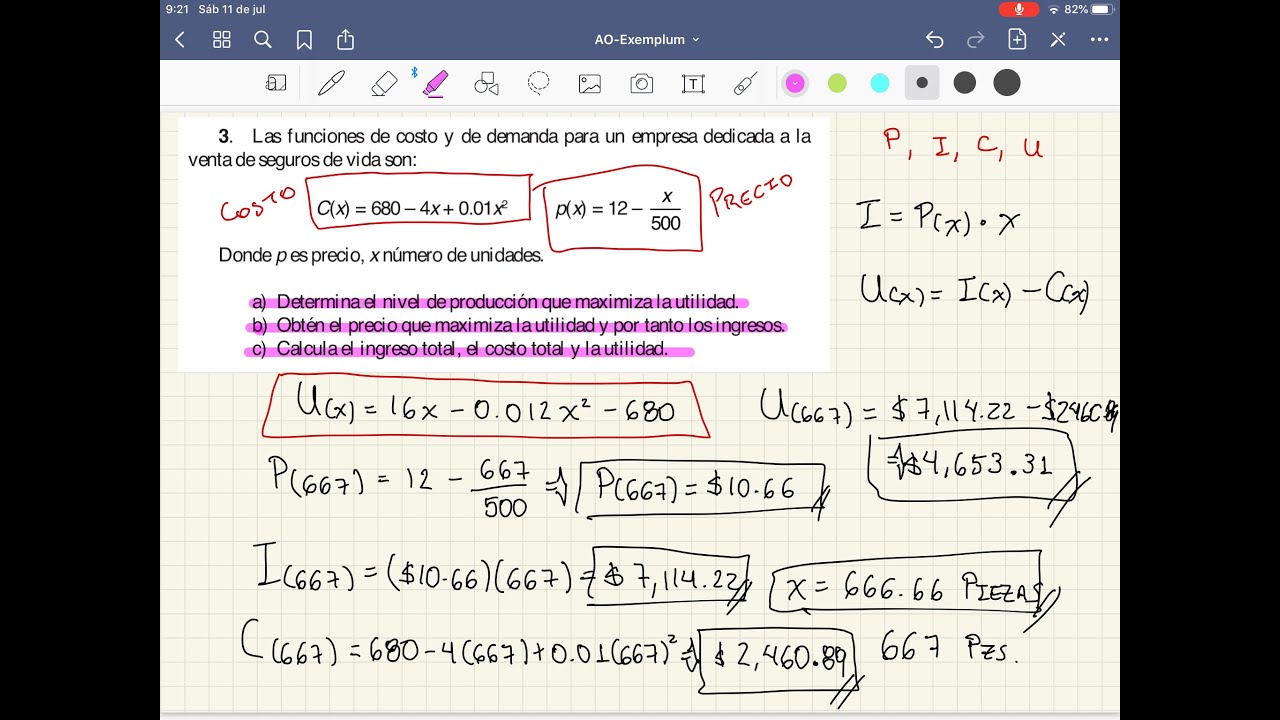 9:21 Sáb 11 de jul
82%
AO-Exemplum
3. Las funciones de costo y de demanda para un empresa dedicada a la
venta de seguros de vida son:
COSTO
C(x) = 680 – 4x + 0.01x²
p(x) = 12 – x/500
PRECIO
Donde p es precio, x número de unidades.
a) Determina el nivel de producción que maximiza la utilidad.
b) Obtén el precio que maximiza la utilidad y por tanto los ingresos.
c) Calcula el ingreso total, el costo total y la utilidad.
P, I, C, U
I = P(x) · x
U(x) = I(x) – C(x)
U(x) = 16x – 0.012x² – 680
U(667) = $7,114.22 – $2460.89
= $4,653.31
P(667) = 12 – 667/500 = P(667) = $10.66
I(667) = ($10.66)(667) = $7,114.22
x = 666.66 PIEZAS
C(667) = 680 – 4(667) + 0.01(667)² = $2,460.89
667 PZS.